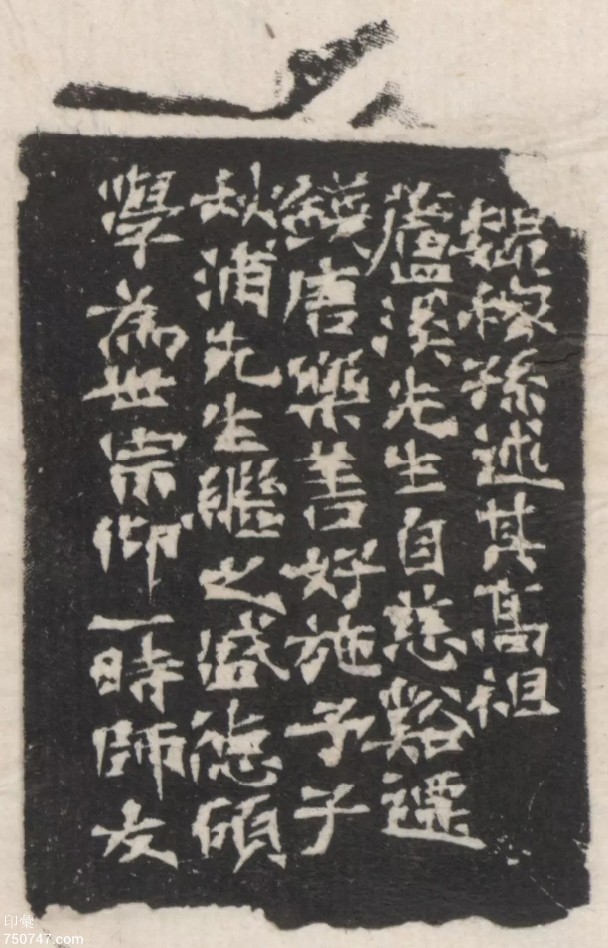 魏稼孫述其高祖
蘆溪先生自慈谿遷
錢唐樂善好施予子
秋浦先生繼之盛德碩
學為世宗仰一時師友
印彙
750747.com